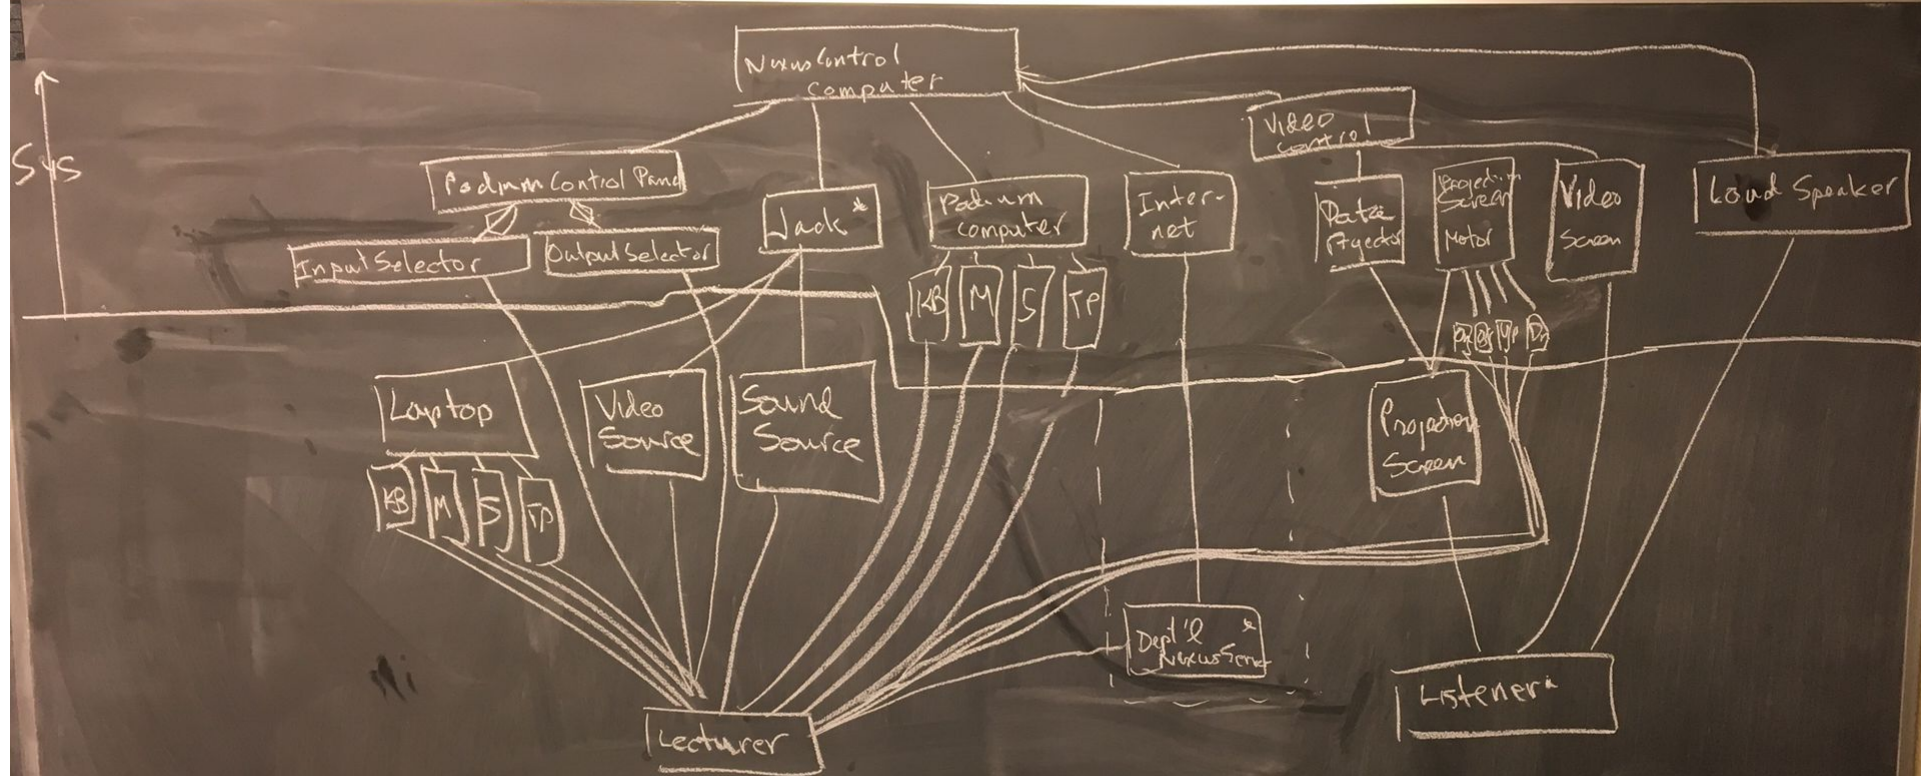 Nexus Control
Computer
Sys
Podium Control Panel
Input Selector
Output Selector
Jack*
Podium
Computer
Inter-
net
Video
Control
Data
Projector
Projection
Screen
Motor
Video
Screen
Loud Speaker
KB
M
S
TP
Up
Dn
Laptop
KB
M
S
TP
Video
Source
Sound
Source
Projection
Screen
Dept'l *
Nexus Serv
Lecturer
Listener*